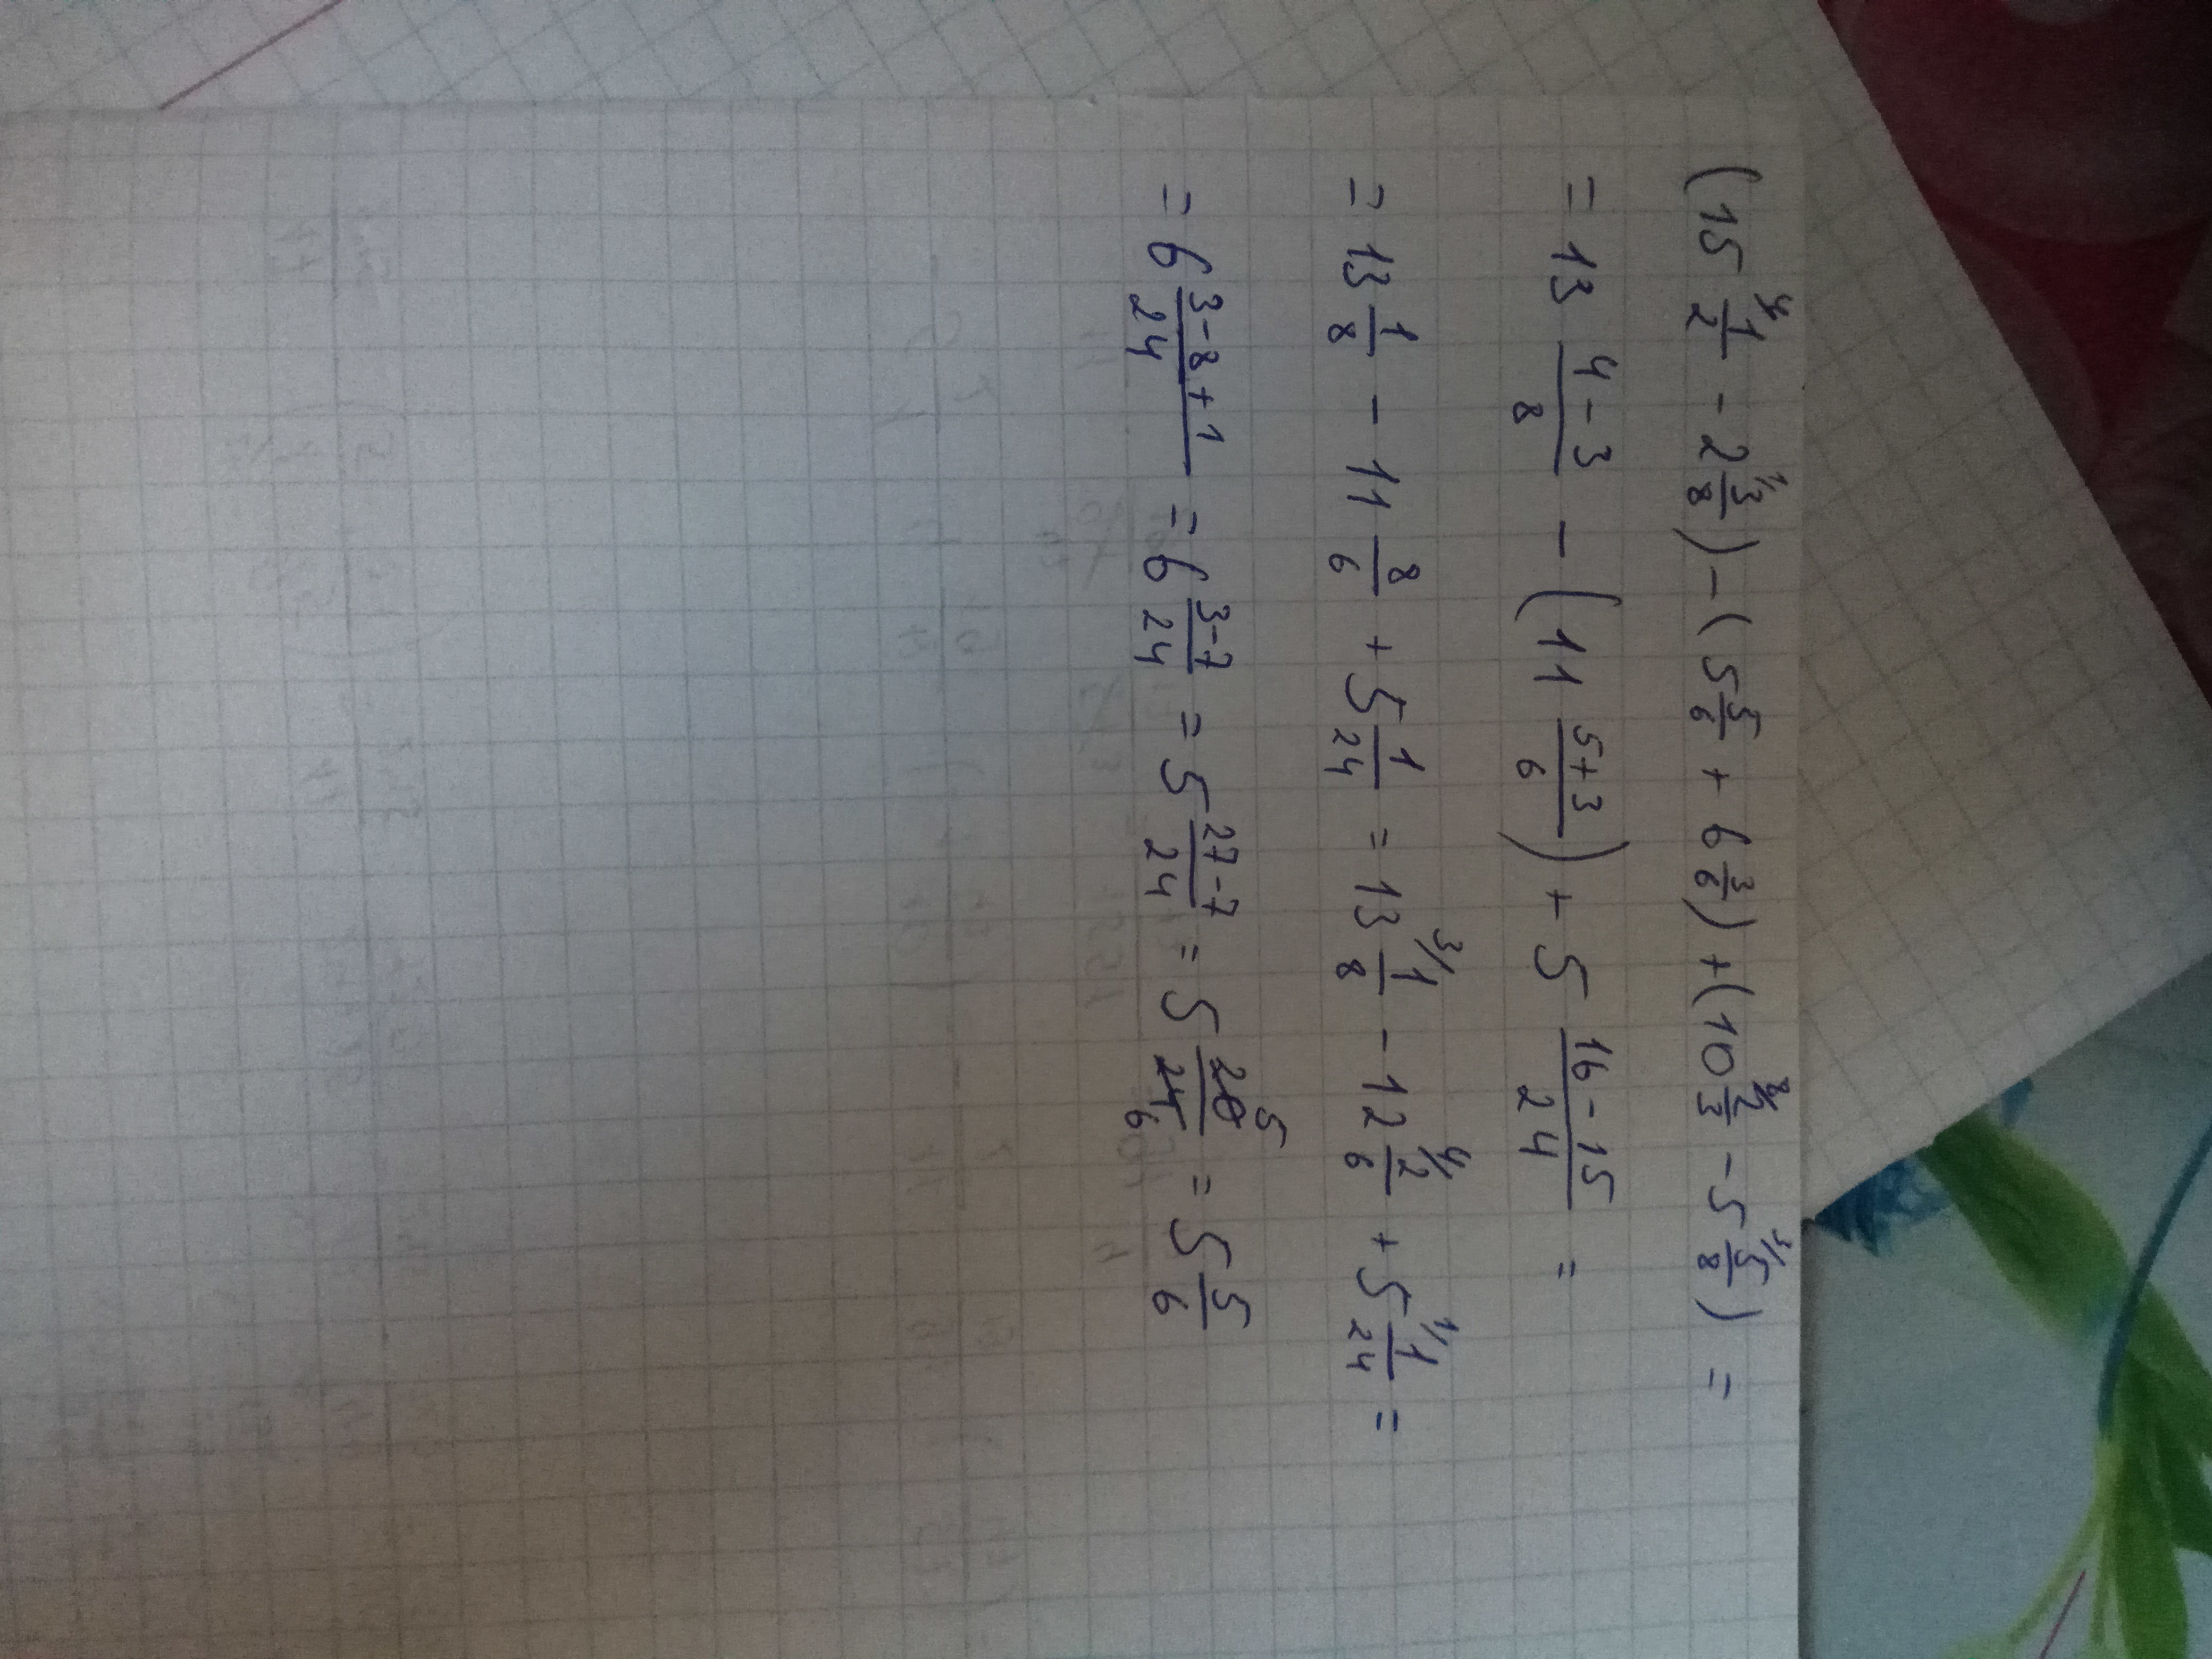 (15 ⁴⁄1/2 - 2 ¹⁄3/8) - (5 5/6 + 6 3/6) + (10 ⁸⁄2/3 - 5 ³⁄5/8) =
= 13 (4-3)/8 - (11 (5+3)/6) + 5 (16-15)/24 =
= 13 1/8 - 11 8/6 + 5 1/24 = 13 ³⁄1/8 - 12 ⁴⁄2/6 + 5 ¹⁄1/24 =
= 6 (3-8+1)/24 = 6 (3-7)/24 = 5 (27-7)/24 = 5 20/24 5/6 = 5 5/6